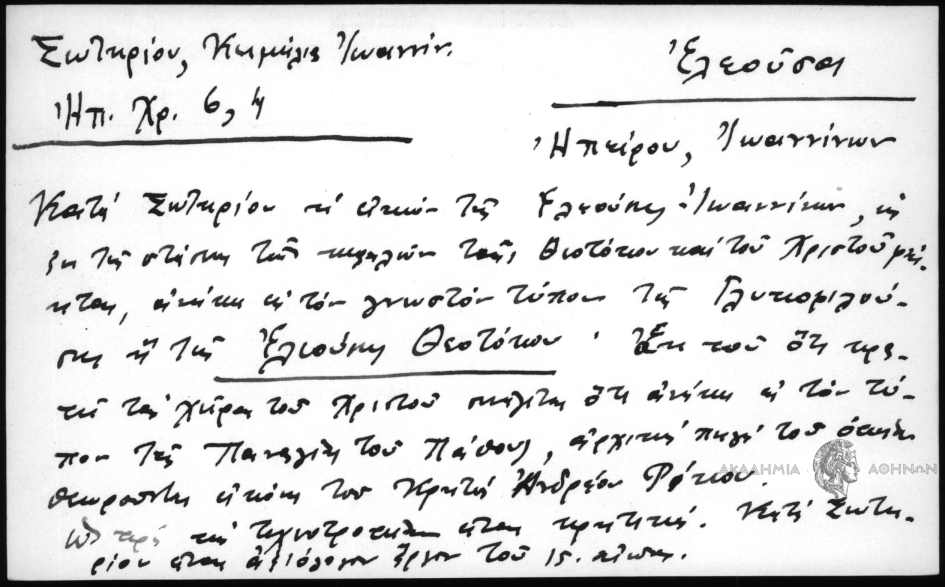 Σωτηρίου, Κειμήλια Ἰωαννίν.
Ἠπ. Χρ. 6, 4
Ἐλεοῦσα
Ἠπείρου, Ἰωαννίνων
Κατά Σωτηρίου ἡ εἰκών τῆς Ἐλεούσης Ἰωαννίνων, ὡς
ἐκ τῆς στάσεως τῶν κεφαλῶν τῆς Θεοτόκου καί τοῦ Χριστοῦ
ἀνήκει εἰς τόν γνωστόν τύπον τῆς Γλυκοφιλού-
σης ἤ τῆς Ἐλεούσης Θεοτόκου. Ἐκ τοῦ ὅτι
τάς χεῖρας τοῦ Χριστοῦ ὅτι ἀνήκει εἰς τόν τύ-
πον τῆς Παναγίας τοῦ Πάθους, ἀρχική πηγή τοῦ ὁποίου
θεωρεῖται εἰκών τοῦ Κρητός Ἀνδρέου Ρίτζου.
Ὡς πρός τήν τεχνοτροπίαν εἶναι κρητική. Κατά Σωτη-
ρίου εἶναι ἀξιόλογον ἔργον τοῦ 15. αἰῶνος.
ΑΚΑΔΗΜΙΑ ΑΘΗΝΩΝ